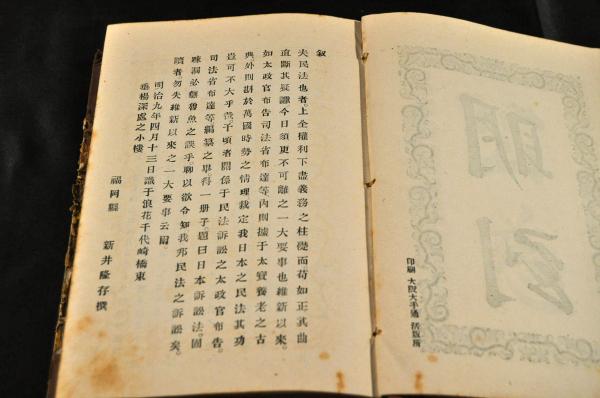 印刷 大阪大手通 活版所
敍
夫民法也者上全權利下盡義務之柱礎而苟如正其曲
直斷其疑讞今日須更不可離之一大要事也維新以來。
如太政官布告司法省布達等內則據于太寶養老之古
典外則斟於萬國時勢之情理裁定我日本之民法其功
豈可不大乎哉予頃者關係于民法訴訟之太政官布告
司法省布達等編纂之畢得一册子題曰日本訴訟法。固
疎漏必魯魚之誤乎聊以欲令知我邦民法之訴訟矣。
讀者勿失維新以來之一大要事云爾。
明治九年四月十三日識于浪花千代崎橋東
垂楊深處之小樓
福岡縣 新井隆存撰